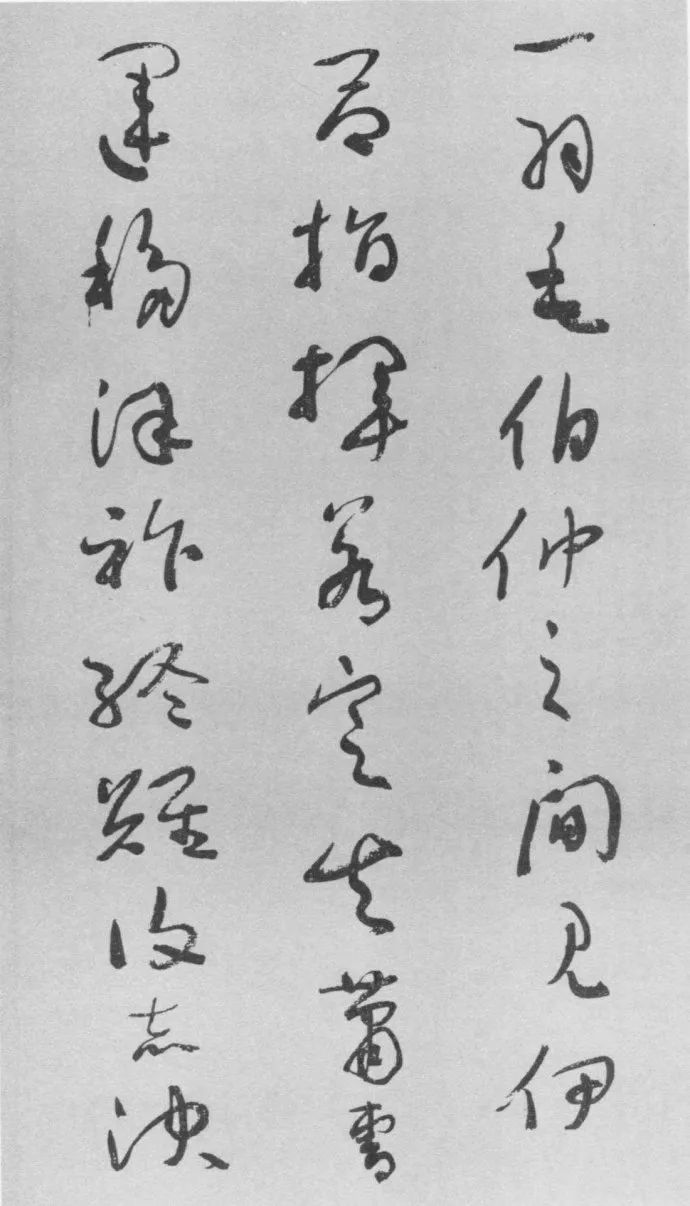 一羽毛伯仲之間見伊
呂指揮若定失蕭曹
運移漢祚終難復志決